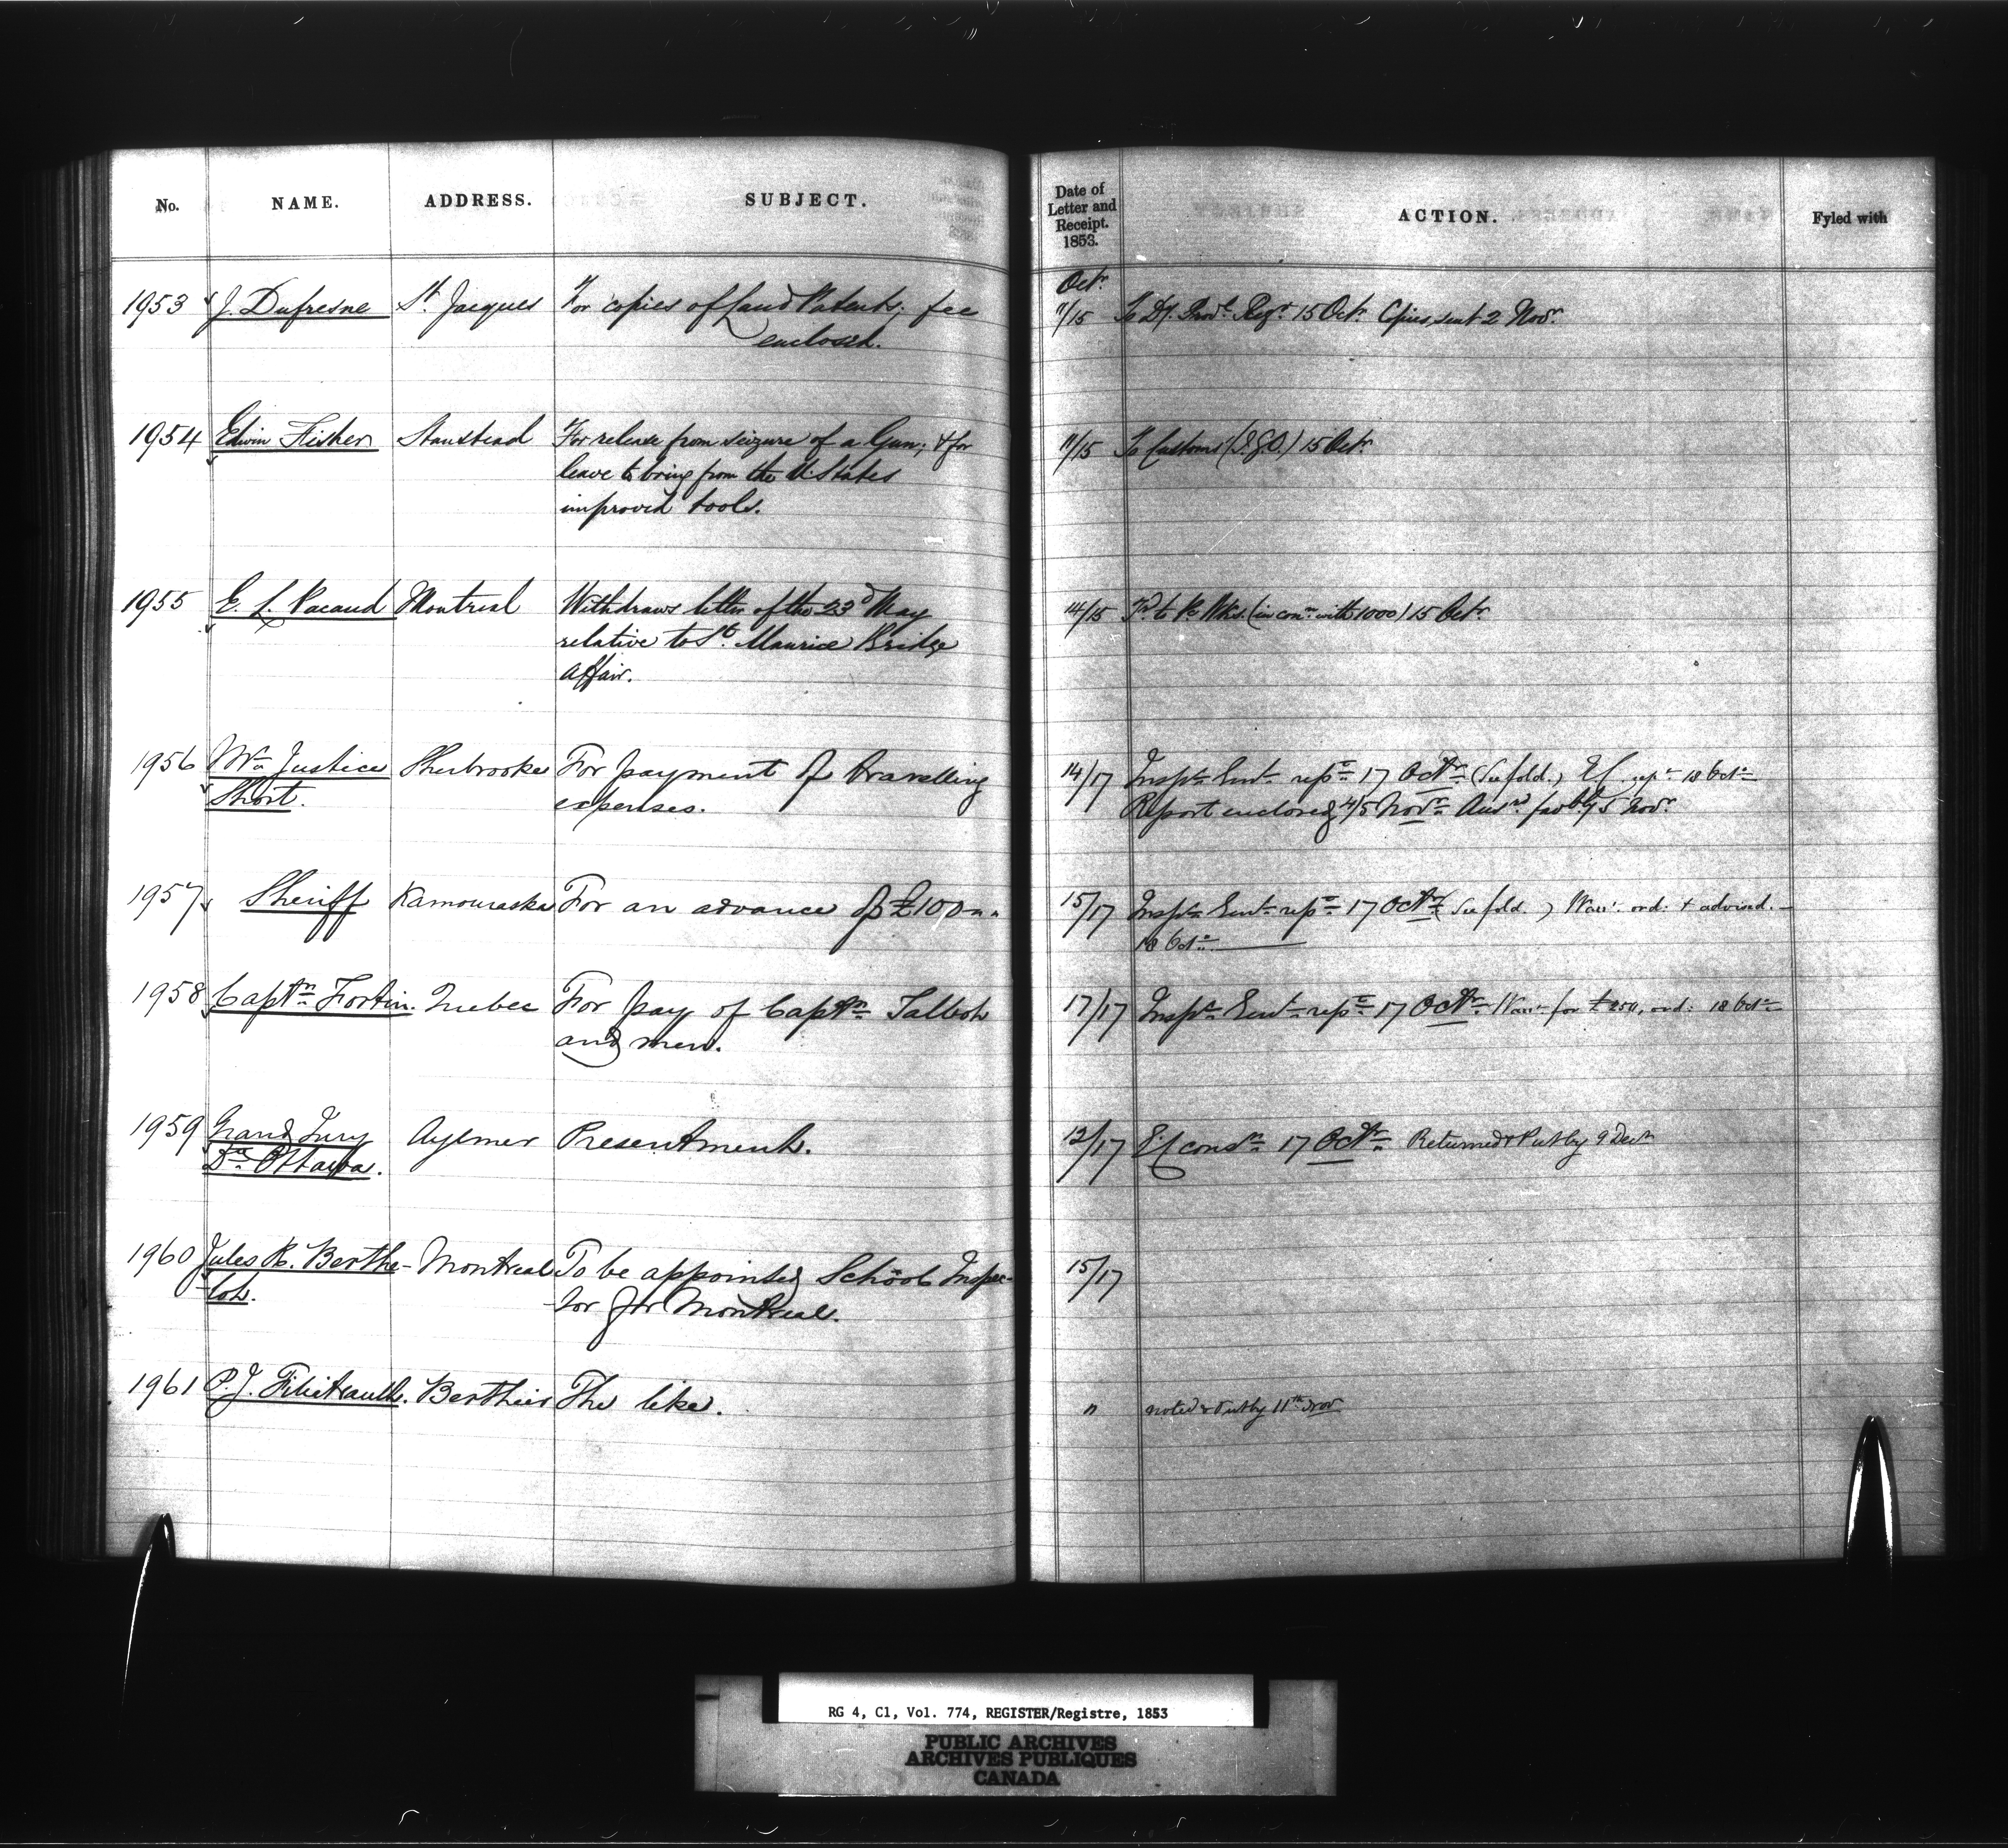 No. NAME. ADDRESS. SUBJECT. Date of Letter and Receipt. 1853. ACTION. Fyled with
Octr.
1953 J. Dufresne St. Jacques For copies of Land Patents; fee 11/15 To Dy. Provl. Regr. 15 Octr. Copies sent 2 Novr.
enclosed.
1954 Edwin Fisher Stanstead For release from seizure of a Gun; & for 11/15 To Customs (I.G.O.) 15 Octr.
leave to bring from the U. States
improved tools.
1955 E. L. Pacaud Montreal Withdraws letter of the 23d May 14/15 Fd. to P. Wks. (in conn. with 1000) 15 Octr.
relative to St. Maurice Bridge
affair.
1956 Mr. Justice Sherbrooke For payment of travelling 14/17 Inspr. Genl. repe. 17 Octr. (See fold.) 18 Octr.
Short. expenses. Report enclosed 4/5 Novr. Ansd. favbly 5 Novr.
1957 Sheriff Kamouraska For an advance of £100 15/17 Inspr. Genl. repe. 17 Octr. (See fold.) Warrt. ord: & advised.
18 Octr.
1958 Captn. Fortin. Quebec For pay of Captn. Talbot 17/17 Inspr. Genl. repe. 17 Octr. Warrt. for £250, ord: 18 Octr.
and men.
1959 Grand Jury Aylmer Presentment. 12/17 consn. 17 Octr. Returned & Put by 9 Decr.
Ottawa.
1960 Jules R. Berthe- Montreal To be appointed School Inspec- 15/17
lot. tor for Montreal.
1961 P. J. Filiatrault. Berthier The like. " noted & Put by 11th Nov
RG 4, C1, Vol. 774, REGISTER/Registre, 1853
PUBLIC ARCHIVES
ARCHIVES PUBLIQUES
CANADA